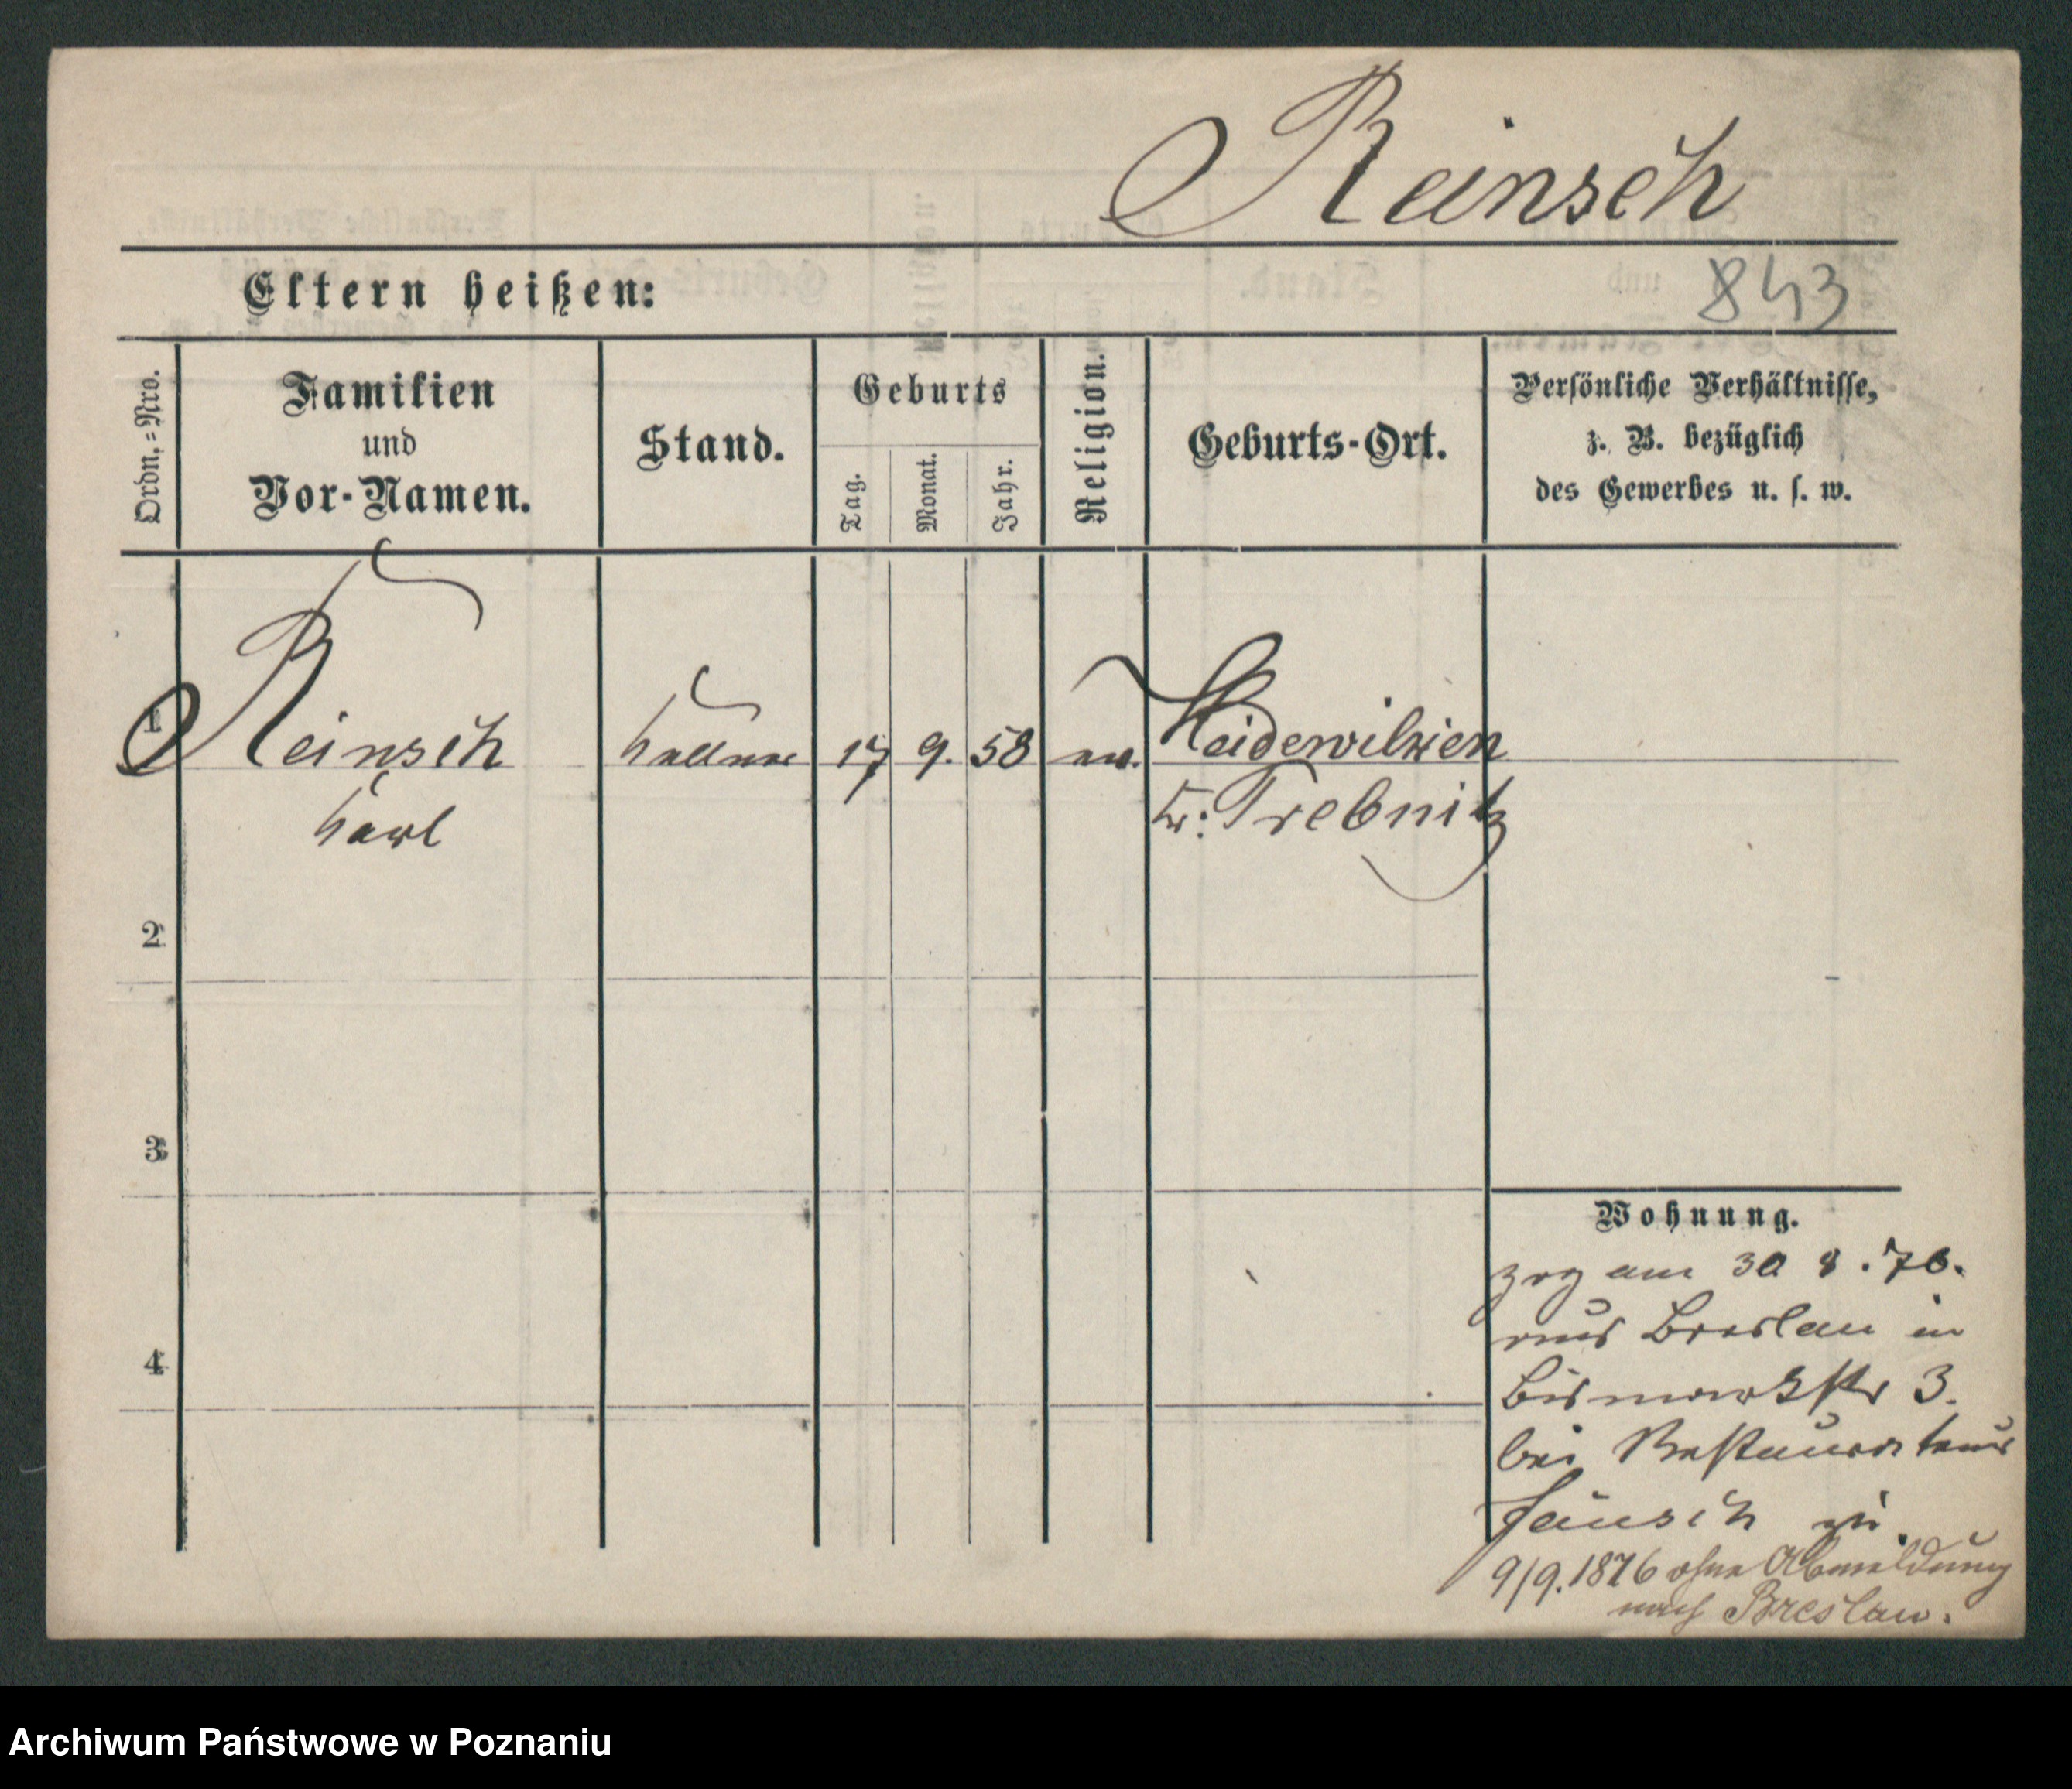 Reinsch
Eltern heißen:
843
Ordn.=Nro.
Familien
und
Vor-Namen.
Stand.
Geburts
Tag.
Monat.
Jahr.
Religion.
Geburts-Ort.
Persönliche Verhältnisse,
z. B. bezüglich
des Gewerbes u. s. w.
1
Reinsch
Karl
Kellner
17
9.
58
ev.
Heidewilxen
Kr: Trebnitz
2
3
4
Wohnung.
zog am 30 8. 76.
aus Breslau in
Bismarkstr 3.
bei Restaurateur
zu.
9/9. 1876 ohne Abmeldung
nach Breslau.
Archiwum Państwowe w Poznaniu